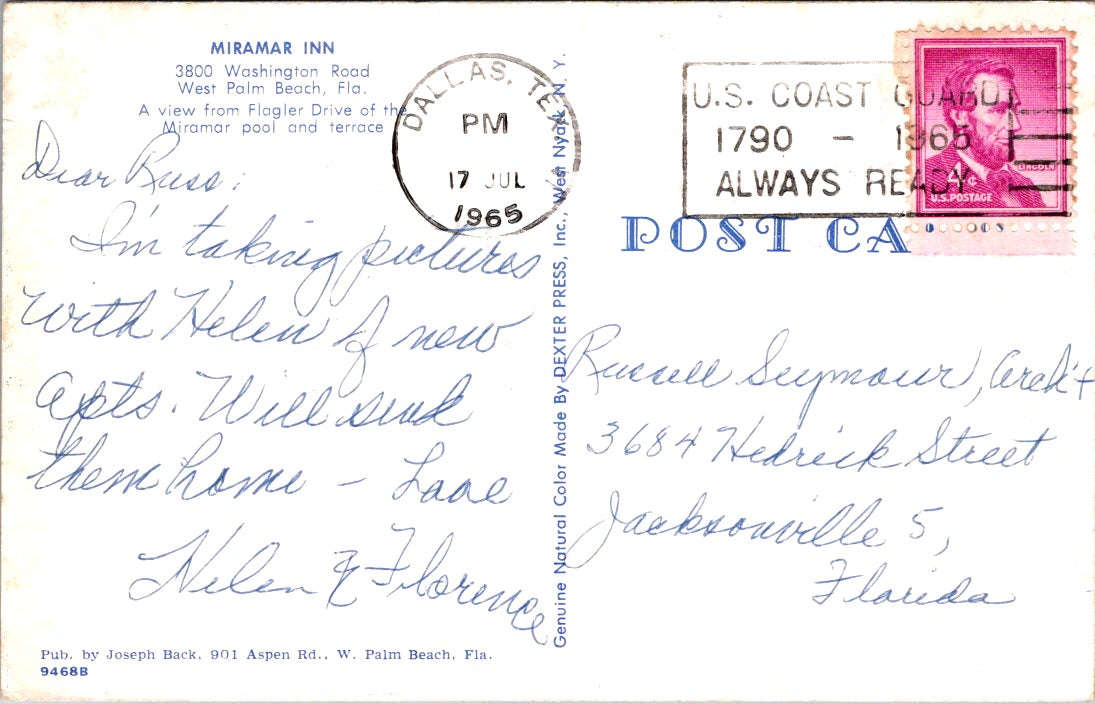 MIRAMAR INN
3800 Washington Road
West Palm Beach, Fla.
A view from Flagler Drive of the
Miramar pool and terrace
Dear Russ:
I'm taking pictures
with Helen of new
apts. Will send
them home - Love
Helen & Florence
Pub. by Joseph Back, 901 Aspen Rd., W. Palm Beach, Fla.
9468B
Genuine Natural Color Made By DEXTER PRESS, Inc., West Nyack, N. Y.
DALLAS, TEX
PM
17 JUL
1965
U.S. COAST GUARD
1790 - 1965
ALWAYS READY
LINCOLN
4c
U.S. POSTAGE
POST CA
Russell Seymour, Arch't
3684 Hedrick Street
Jacksonville 5,
Florida